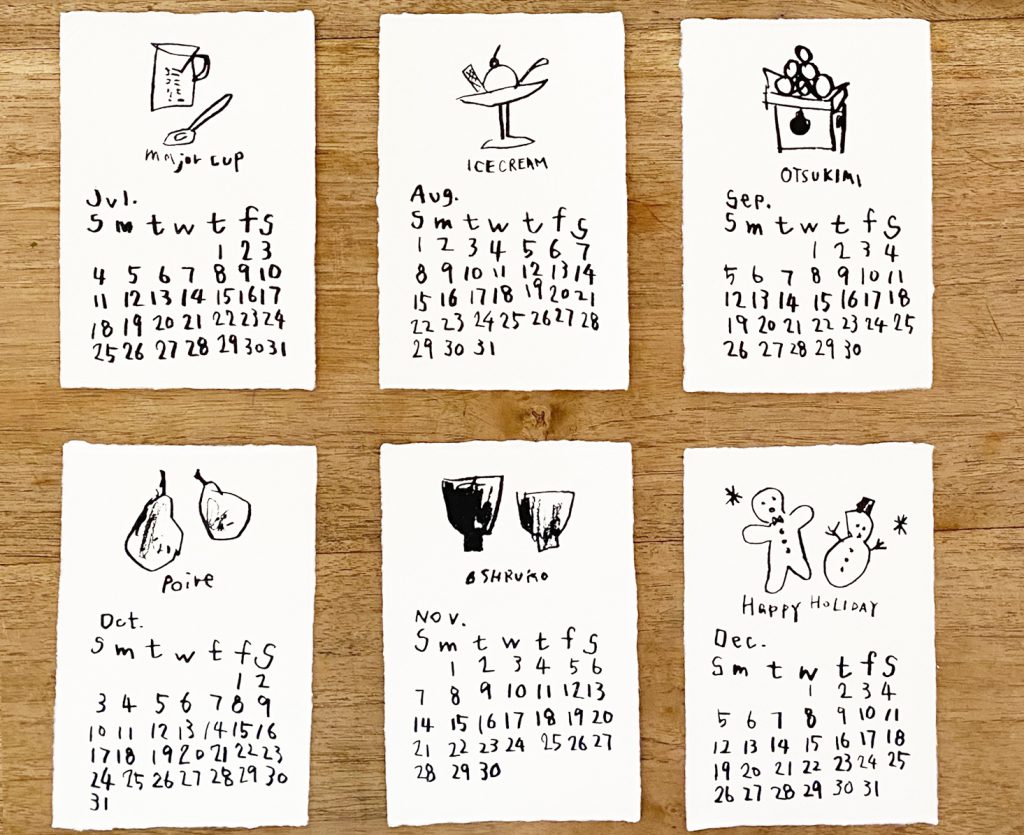 Major cup
Jul.
S m t w t f S
1 2 3
4 5 6 7 8 9 10
11 12 13 14 15 16 17
18 19 20 21 22 23 24
25 26 27 28 29 30 31
ICECREAM
Aug.
S m t w t f S
1 2 3 4 5 6 7
8 9 10 11 12 13 14
15 16 17 18 19 20 21
22 23 24 25 26 27 28
29 30 31
OTSUKIMI
Sep.
S m t w t f S
1 2 3 4
5 6 7 8 9 10 11
12 13 14 15 16 17 18
19 20 21 22 23 24 25
26 27 28 29 30
Poire
Oct.
S m t w t f S
1 2
3 4 5 6 7 8 9
10 11 12 13 14 15 16
17 18 19 20 21 22 23
24 25 26 27 28 29 30
31
Nov.
S m t w t f S
1 2 3 4 5 6
7 8 9 10 11 12 13
14 15 16 17 18 19 20
21 22 23 24 25 26 27
28 29 30
Happy HOLIDAY
Dec.
S m t w t f S
1 2 3 4
5 6 7 8 9 10 11
12 13 14 15 16 17 18
19 20 21 22 23 24 25
26 27 28 29 30 31